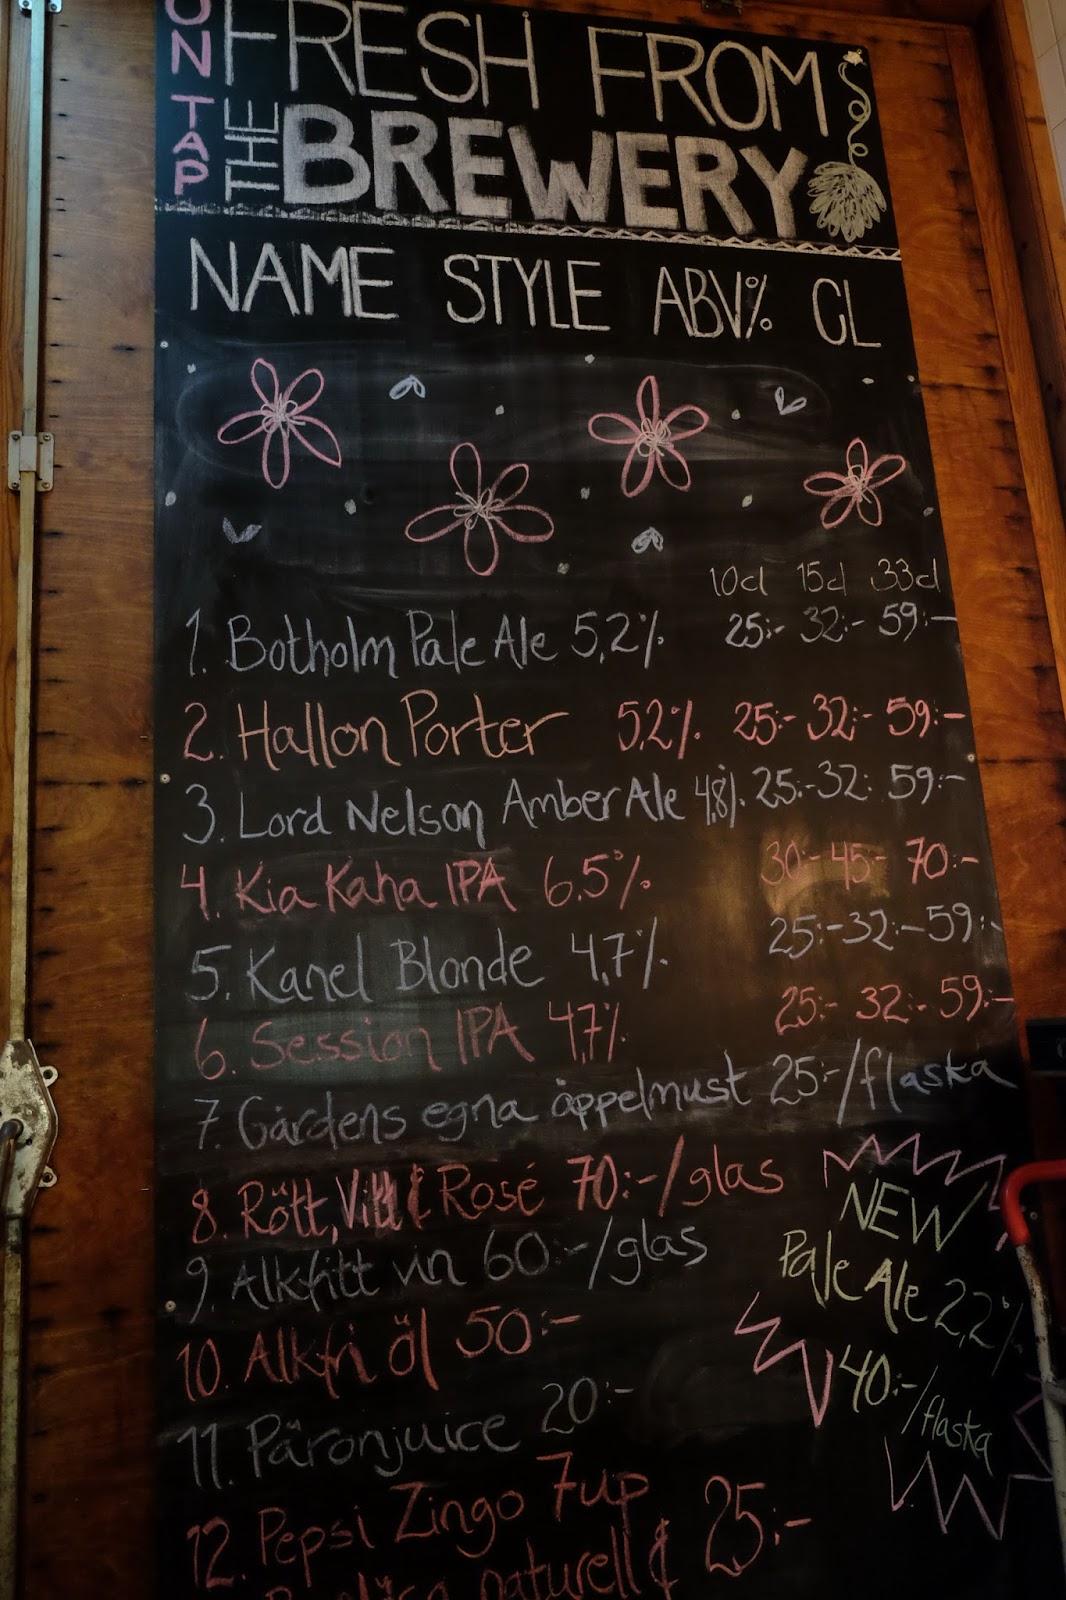 ON TAP
FRESH FROM
THE BREWERY
NAME STYLE ABV% CL
10cl 15cl 33cl
1. Botholm Pale Ale 5,2% 25:- 32:- 59:-
2. Hallon Porter 5,2% 25:- 32:- 59:-
3. Lord Nelson Amber Ale 4,8% 25:- 32: 59:-
4. Kia Kaha IPA 6.5% 30:- 45- 70:-
5. Kanel Blonde 4,7% 25:- 32:- 59:-
6. Session IPA 4,7% 25:- 32:- 59:-
7. Gårdens egna äppelmust 25:-/flaska
8. Rött, Vitt & Rosé 70:-/glas
9. Alkfritt vin 60:-/glas
10. Alkfri öl 50:-
11. Päronjuice 20:-
12. Pepsi Zingo 7up 25:-
naturell &
NEW
Pale Ale 2,2%
40:-/flaska